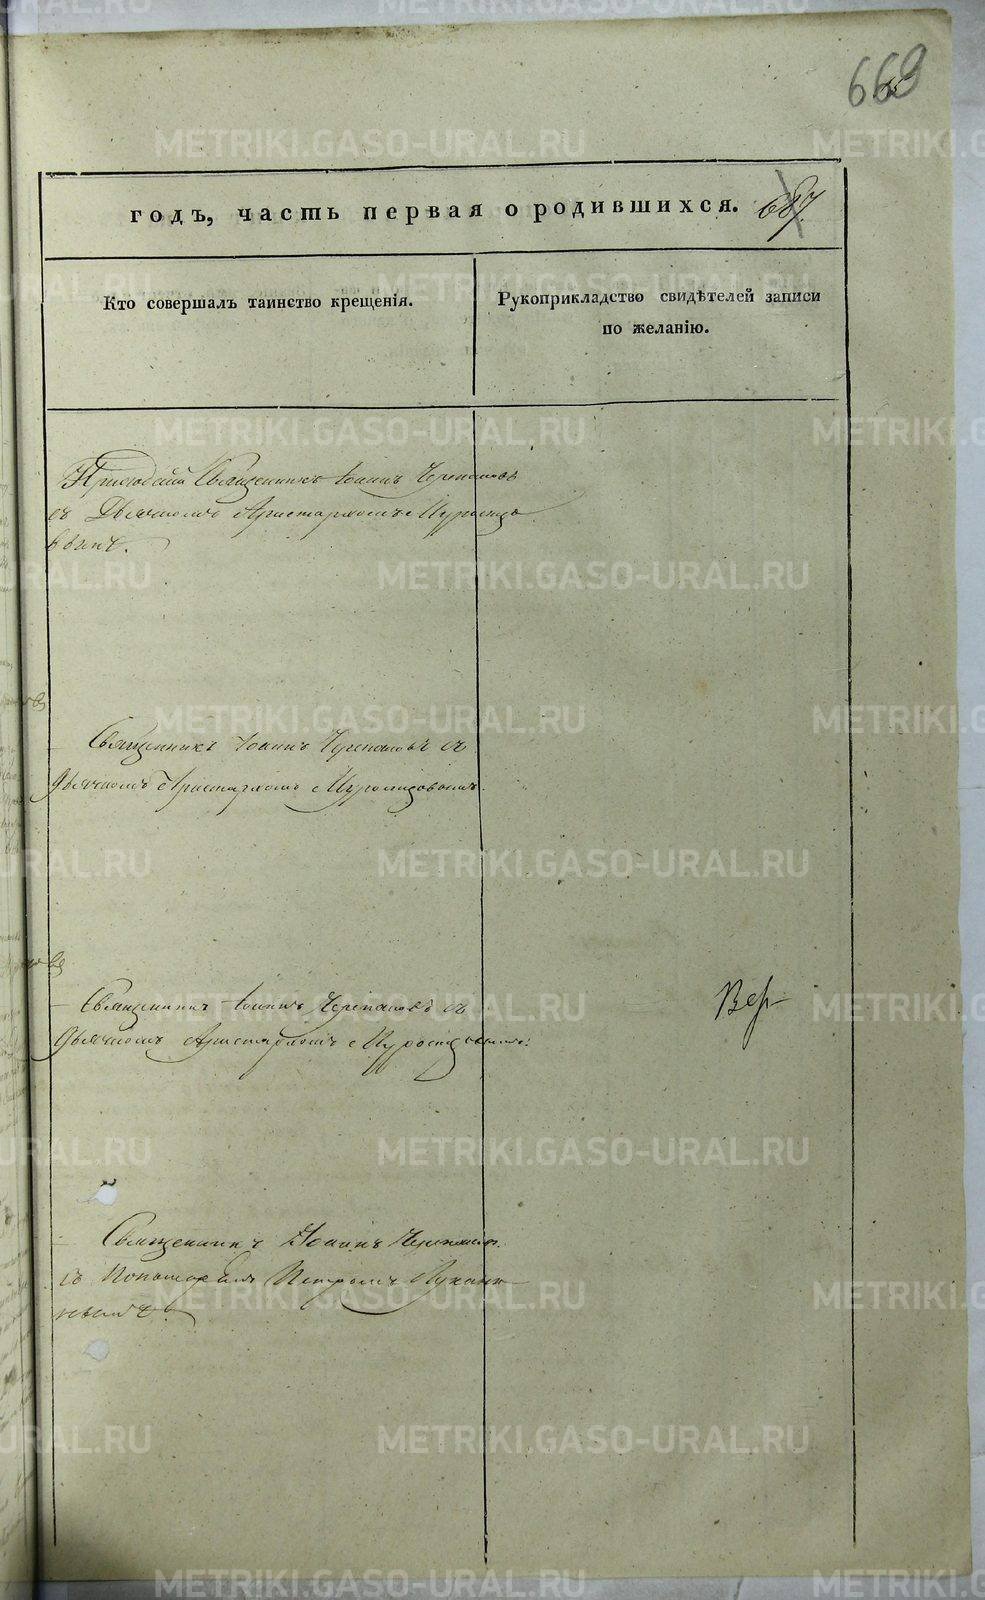 669
годъ, часть первая о родившихся. 687
Кто совершалъ таинство крещенія.
Рукоприкладство свидѣтелей записи
по желанію.
Приходскій Священникъ Іоаннъ Черепановъ
съ Дьячкомъ Аристархомъ
Священникъ Іоаннъ Черепановъ съ
Дьячкомъ Аристархомъ
Священникъ Іоаннъ Черепановъ съ
Дьячкомъ Аристархомъ
Вер
Священникъ Іоаннъ Черепановъ
съ Пономаремъ Петромъ
METRIKI.GASO-URAL.RU